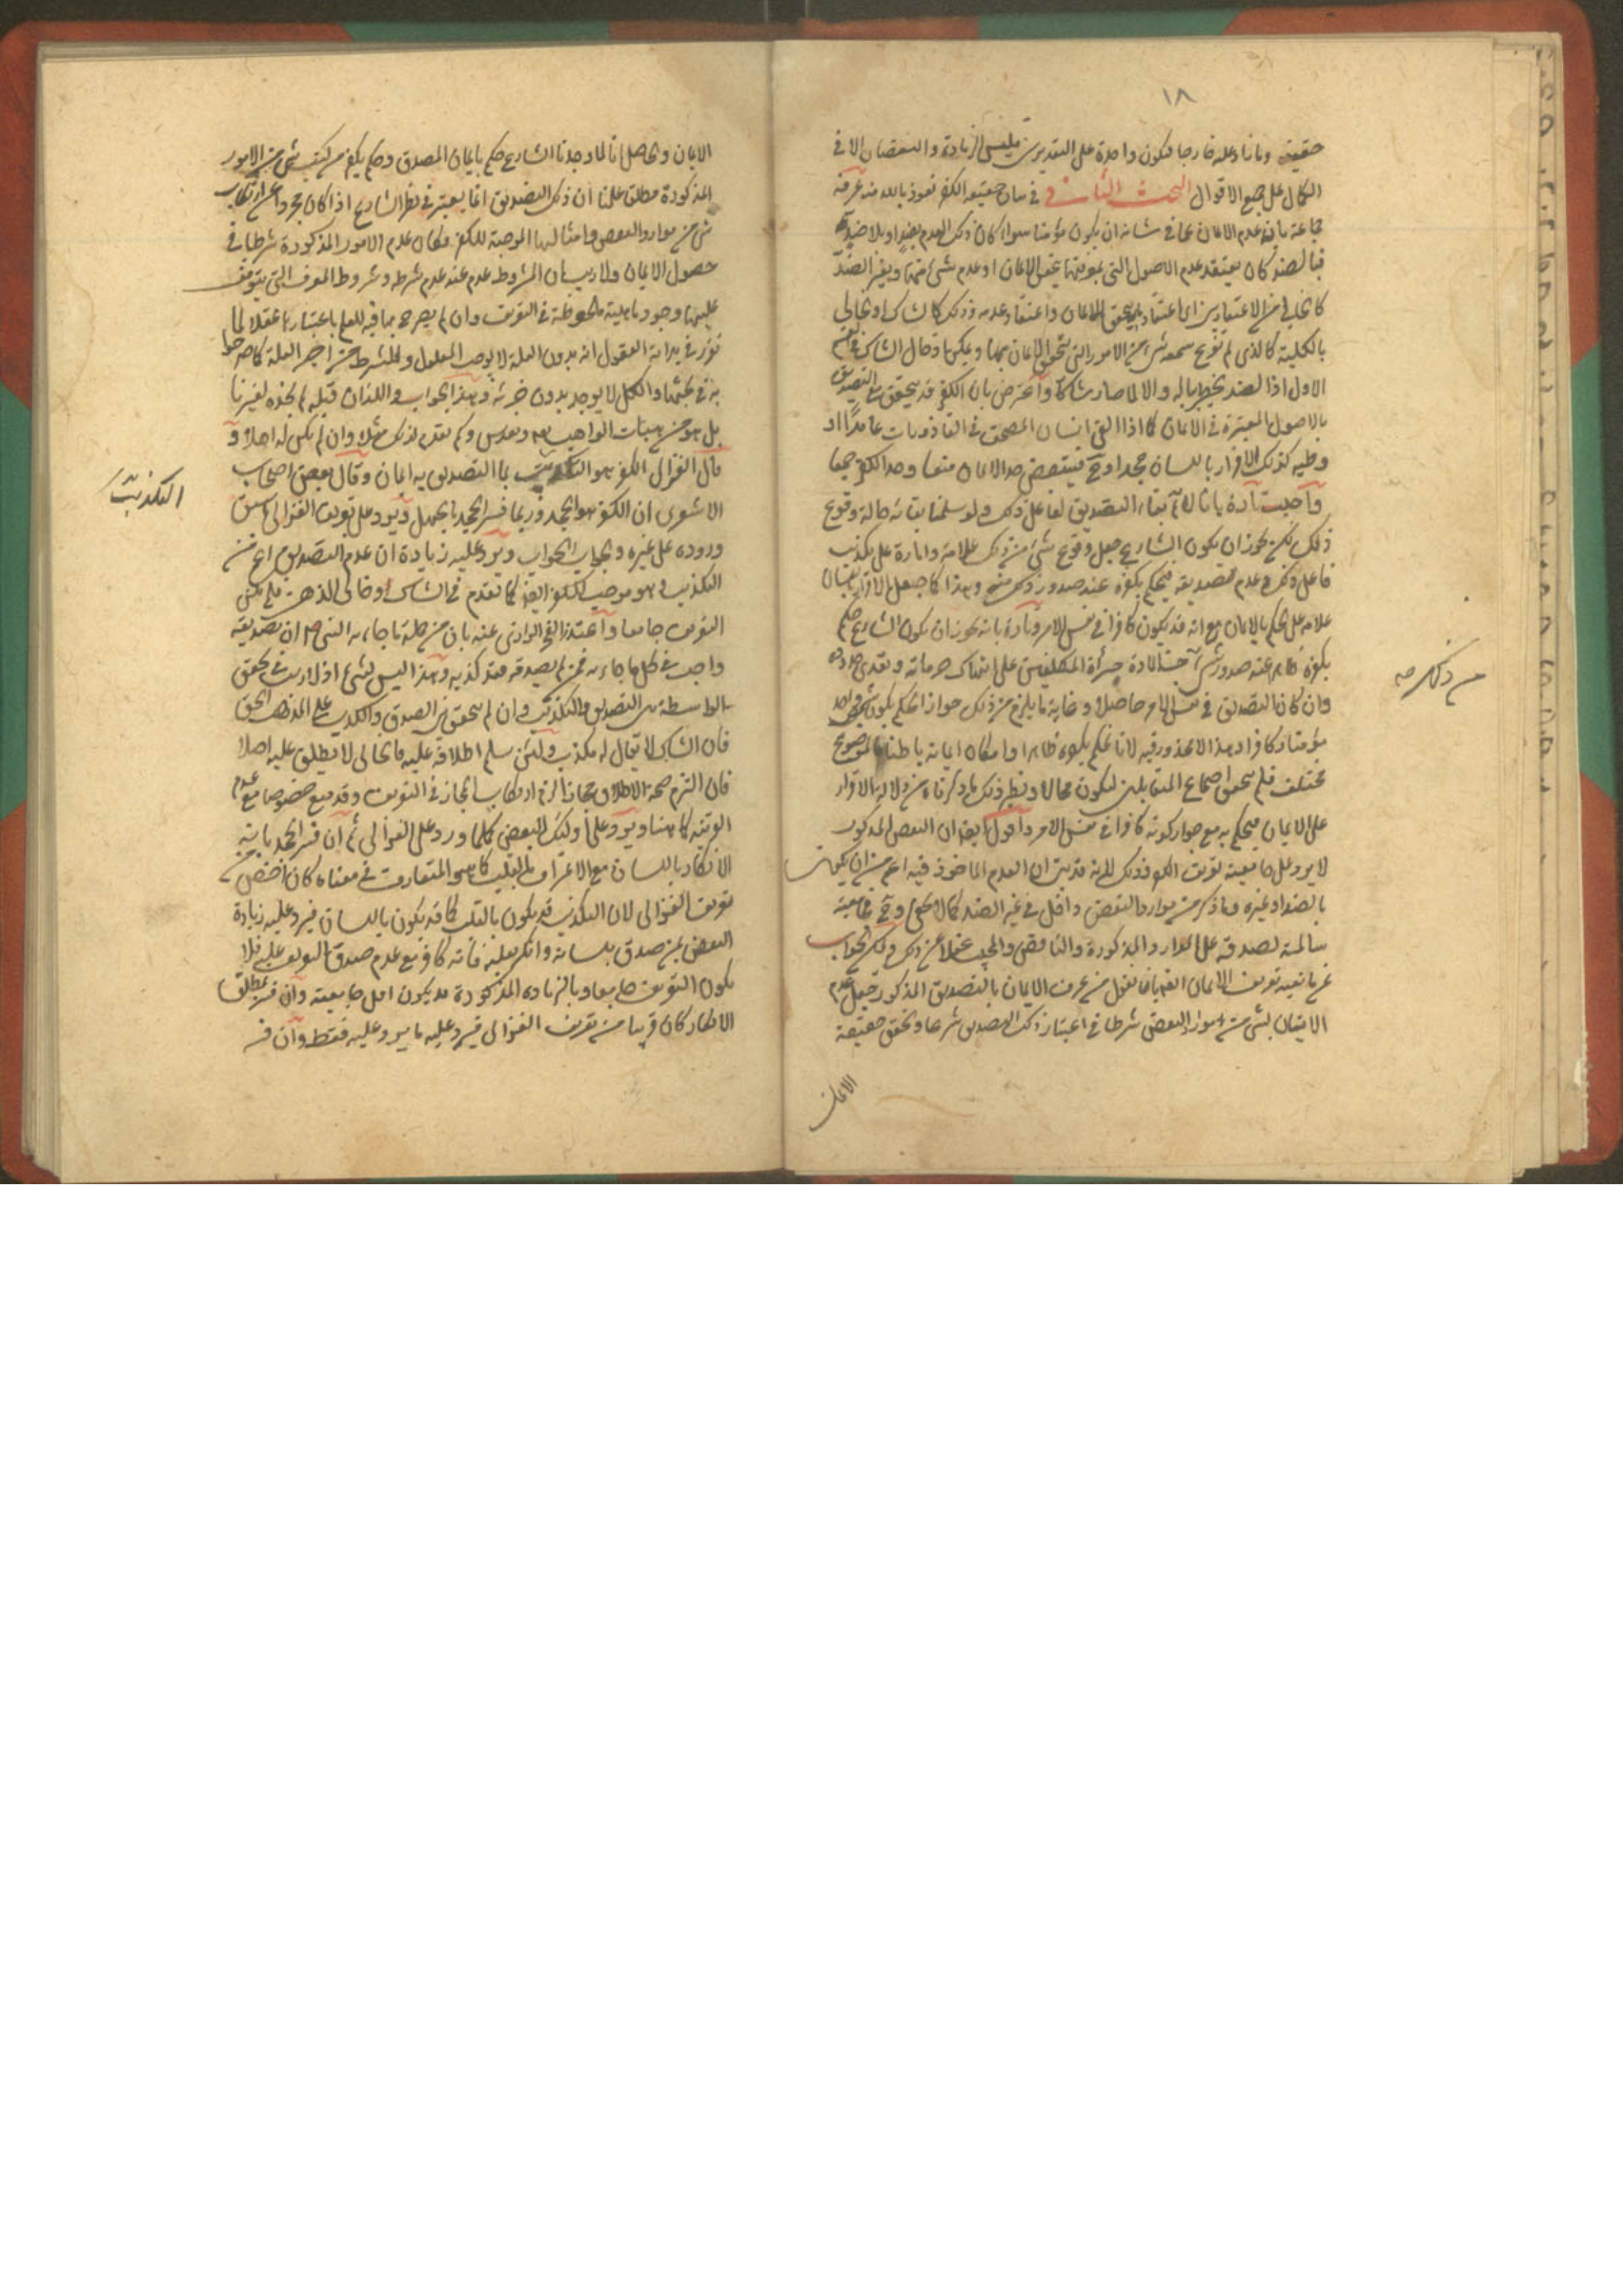 ١٨
حقيقته وما زاد عليه خارجا فتكون واحدة على التقديرين فليس الزيادة والنقصان الا في
الكمال على جميع الاقوال البحث الثاني في بيان حقيقة الكفر نعوذ بالله منه عرفه
جماعة بانه عدم الايمان عما من شانه ان يكون مؤمنا سواء كان ذلك العدم بضد او بلا ضد
فبالضد كان يعتقد عدم الاصول التي بمعرفتها يتحقق الايمان او عدم شئ منها وبغير الضد
كالخالي من الاعتقادين اي اعتقاد ما به يتحقق الايمان واعتقاد عدمه وذلك كالشاك او الخالي
بالكلية كالذي لم يقرع سمعه شئ من الامور التي يتحقق الايمان بها ويمكن ادخال الشاك في القسم
الاول اذ الضد يخطر بباله والا لما صار شاكا واعترض بان الكفر قد يتحقق مع التصديق
بالاصول المعتبرة في الايمان كما اذا القى انسان المصحف في القاذورات عامدا او
وطيه كذلك او ترك الاقرار باللسان جحدا وح فينتقض حد الايمان منعا وحد الكفر جمعا
واجيب تارة بانا لا نم بقاء التصديق لفاعل ذلك ولو سلمنا بقائه حالة وقوع
ذلك لكن يجوز ان يكون الشارع جعل وقوع شئ من ذلك علامة وامارة على تكذيب
فاعل ذلك وعدم تصديقه فيحكم بكفره عند صدور ذلك منه وهذا كما جعل الاقرار باللسان
علامة على الحكم بالايمان مع انه قد يكون كافرا في نفس الامر وتارة بانه يجوز ان يكون الشارع حكم
بكفره ظاهرا عند صدور شئ من ذلك حسما لمادة جرأة المكلفين على انتهاك حرماته وتعدي حدوده
وان كان التصديق في نفس الامر حاصلا وغاية ما يلزم من ذلك جواز الحكم بكون شخص واحد
مؤمنا وكافرا وهذا لا محذور فيه لانا نحكم بكفره ظاهرا وامكان ايمانه باطنا فالموضوع
مختلف فلم يتحقق اجتماع المتقابلين ليكون محالا ونظير ذلك ما ذكرناه من دلالة الاقرار
على الايمان فيحكم به مع جواز كونه كافرا في نفس الامر واقول ايضا ان النقض المذكور
لا يرد على جامعية تعريف الكفر وذلك لانه قد بين ان العدم الماخوذ فيه اعم من ان يكون
بالضد او غيره وما ذكر من موارد النقض داخل في غير الضد كما لا يخفى وح فجامعيته
سالمة لصدقه على الموارد المذكورة والناقض والمجيب غفلا عن ذلك ويمكن الجواب
عن مانعية تعريف الايمان ايضا بان نقول من عرف الايمان بالتصديق المذكور جعل عدم
الاتيان بشئ من موارد النقض شرطا في اعتبار ذلك التصديق شرعا وتحقق حقيقة
الايمان
من ذلك صح
الايمان والحاصل انا لما وجدنا الشارع حكم بايمان المصدق وحكم بكفر مرتكب شئ من الامور
المذكورة مطلقا علمنا ان ذلك التصديق انما يعتبر في نظر الشارع اذا كان مجردا عن ارتكاب
شئ من موارد النقض وامثالها الموجبة للكفر فكان عدم الامور المذكورة شرطا في
حصول الايمان ولا ريب ان المشروط عدم عند عدم شرطه وشروط المعرف التي يتوقف
عليها وجود ماهيته ملحوظة في التعريف وان لم يصرح بها فيه للعلم باعتبارها عقلا لما
تقرر في بداية العقول انه بدون العلة لا يوجد المعلول والشرط من اجزاء العلة كما صرحوا
به في بحثها والكل لا يوجد بدون جزئه وهذا الجواب واللذان قبله لم نجده لغيرنا
بل هو من هبات الواهب تعالى وتقدس ولم نعدم لذلك مثلا وان لم نكن له اهلا و
قال الغزالي الكفر هو التكذيب بما التصديق به ايمان وقال بعض اصحاب
الاشعري ان الكفر هو الجحد وربما فسر الجحد بالجهل ويرد على تعريف الغزالي ما سبق
وروده على غيره والجواب الجواب ويرد عليه زيادة ان عدم التصديق اعم من
التكذيب وهو موجب للكفر ايضا كما تقدم في الشاك وخالي الذهن فلم يكن
التعريف جامعا واعتذر الفخر الرازي عنه بان من جملة ما جاء به النبي ص ان تصديقه
واجب في كل ما جاء به فمن لم يصدقه فقد كذبه وهذا ليس بشئ اذ لا ريب في تحقق
الواسطة بين التصديق والتكذيب وان لم يتحقق بين الصدق والكذب على المذهب الحق
فان الشاك لا يقال له مكذب ولئن سلم اطلاقه عليه فالخالي لا يطلق عليه اصلا
فان التزم صحة الاطلاق مجازا لزم ارتكاب المجاز في التعريف وقد منع خصوصا مع عدم
القرينة كما هنا ويرد على اولئك البعض كلما ورد على الغزالي ثم ان فسر الجحد بانه
الانكار باللسان مع الاعتراف بالقلب كما هو المتعارف في معناه كان اخص من
تعريف الغزالي لان التكذيب قد يكون بالقلب كما قد يكون باللسان فيرد عليه زيادة
النقض بمن صدق بلسانه وانكر بقلبه فانه كافر مع عدم صدق التعريف عليه فلا
يكون التعريف جامعا وبالزيادة المذكورة قد يكون اقل جامعية وان فسر بمطلق
الانكار كان قريبا من تعريف الغزالي فيرد عليه ما يرد عليه فقط وان فسر
التكذيب